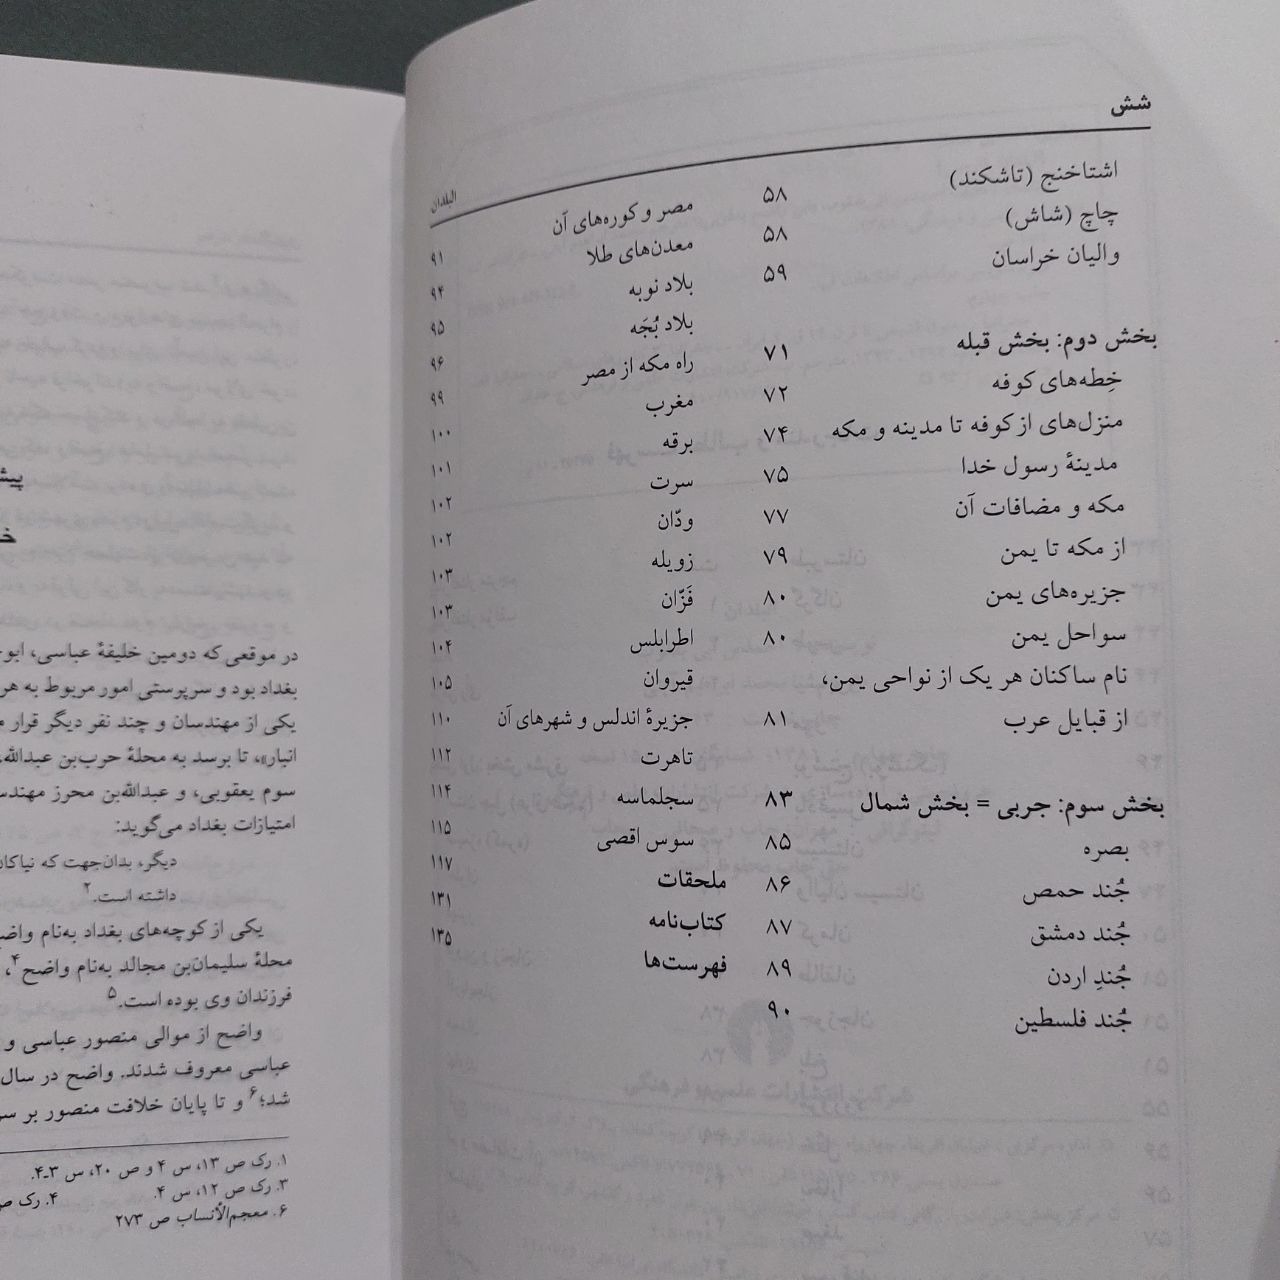 شش
اشتاخنج (تاشکند) ۵۸
چاچ (شاش) ۵۸
والیان خراسان ۵۹
بخش دوم: بخش قبله ۷۱
خِطه‌های کوفه ۷۲
منزل‌های از کوفه تا مدینه و مکه ۷۴
مدینهٔ رسول خدا ۷۵
مکه و مضافات آن ۷۷
از مکه تا یمن ۷۹
جزیره‌های یمن ۸۰
سواحل یمن ۸۰
نام ساکنان هر یک از نواحی یمن،
از قبایل عرب ۸۱
بخش سوم: جربی = بخش شمال ۸۳
بصره ۸۵
جُند حمص ۸۶
جُند دمشق ۸۷
جُندِ اردن ۸۹
جُند فلسطین ۹۰
البلدان
مصر و کوره‌های آن ۹۱
معدن‌های طلا ۹۴
بلاد نوبه ۹۵
بلاد بُجَه ۹۶
راه مکه از مصر ۹۹
مغرب ۱۰۰
برقه ۱۰۱
سرت ۱۰۲
ودّان ۱۰۲
زویله ۱۰۳
فَزّان ۱۰۳
اطرابلس ۱۰۴
قیروان ۱۰۵
جزیرهٔ اندلس و شهرهای آن ۱۱۰
تاهرت ۱۱۲
سجلماسه ۱۱۴
سوس اقصی ۱۱۵
ملحقات ۱۱۷
کتاب‌نامه ۱۳۱
فهرست‌ها ۱۳۵
در موقعی که دومین خلیفهٔ عباسی،
بغداد بود و سرپرستی امور مربوط به هر
یکی از مهندسان و چند نفر دیگر قرار
انبار»، تا برسد به محلهٔ حرب‌بن عبدالله،
سوم یعقوبی، و عبدالله‌بن محرز
امتیازات بغداد می‌گوید:
دیگر، بدان‌جهت که نیاکان
داشته است.۲
یکی از کوچه‌های بغداد به‌نام
محلهٔ سلیمان‌بن مجالد به‌نام واضح۴،
فرزندان وی بوده است.۵
واضح از موالی منصور عباسی و
عباسی معروف شدند. واضح در سال
شد؛۶ و تا پایان خلافت منصور بر
۱. رک ص ۱۳، س ۴ و ص ۲۰، س ۳ـ۴.
۳. رک ص ۱۲، س ۴. ۴. رک
۶. معجم‌الأنساب ص ۲۷۳